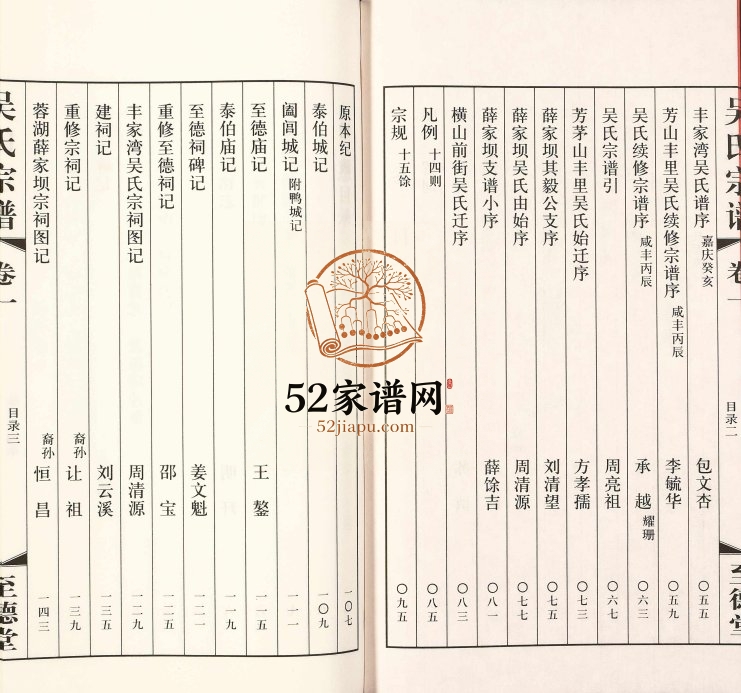 吴氏宗谱 卷一 目录二 至德堂
丰家湾吴氏谱序 嘉庆癸亥 包文杏 〇五五
芳山丰里吴氏续修宗谱序 咸丰丙辰 李毓华 〇五九
吴氏续修宗谱序 咸丰丙辰 承越 耀珊 〇六三
吴氏宗谱引 周亮祖 〇六七
芳茅山丰里吴氏始迁序 方孝孺 〇七三
薛家坝其毅公支序 刘清望 〇七五
薛家坝吴氏由始序 周清源 〇七七
薛家坝支谱小序 薛馀吉 〇八一
横山前街吴氏迁序 〇八三
凡例 十四则 〇八五
宗规 十五馀 〇九五
原本纪 一〇七
泰伯城记 一〇九
阖闾城记 附鸭城记 一一一
至德庙记 王鏊 一一五
泰伯庙记 一一九
至德祠碑记 姜文魁 一二一
重修至德祠记 邵宝 一二五
丰家湾吴氏宗祠图记 周清源 一二九
建祠记 刘云溪 一三五
重修宗祠记 裔孙 让祖 一三九
蓉湖薛家坝宗祠图记 裔孙 恒昌 一四三
吴氏宗谱 卷一 目录三 至德堂
52家谱网
52jiapu.com